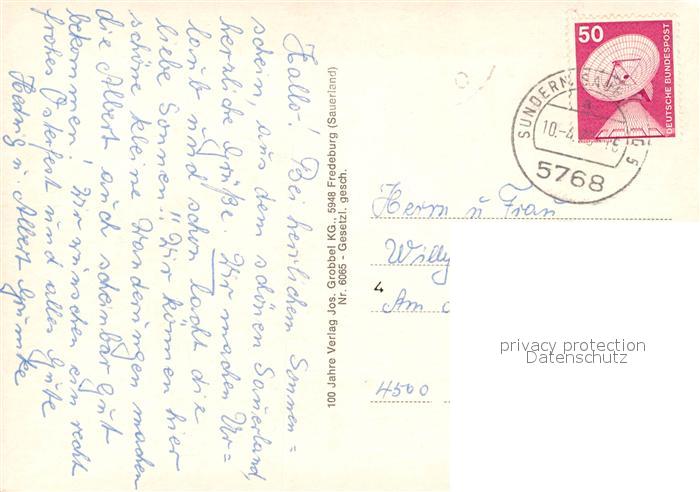 Hallo! Bei herrlichem Sonnen=
schein, aus dem schönen Sauerland,
herzliche Grüße. Wir machen Ur=
laub und schon lacht die
liebe Sonnen." Wir können hier
schöne kleine Wanderungen machen
die Albert auch scheinbar gut
bekommen! Wir wünschen ein recht
frohes Osterfest und alles Gute
Hedwig u. Albert
100 Jahre Verlag Jos. Grobbel KG., 5948 Fredeburg (Sauerland)
Nr. 6065 - Gesetzl. gesch.
50
DEUTSCHE BUNDESPOST
SUNDERN
10.-4.
5768
Herrn u Frau
Willy
4
Am
4500
privacy protection
Datenschutz